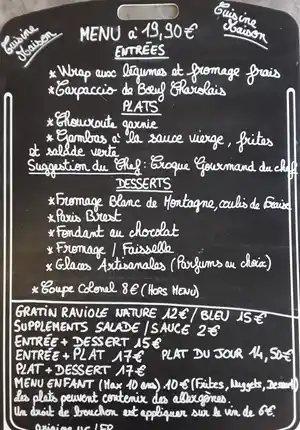 Cuisine Maison
Cuisine Maison
MENU à 19,90€
ENTRÉES
* Wrap aux légumes et fromage frais
* Carpaccio de Bœuf Charolais
PLATS
* Choucroute garnie
* Gambas à la sauce vierge, frites
et salade verte
Suggestion du Chef: Croque Gourmand du chef
DESSERTS
* Fromage Blanc de Montagne, coulis de fraise
* Paris Brest
* Fondant au chocolat
* Fromage / Faisselle
* Glaces Artisanales (Parfums au choix)
* Coupe Colonel 8€ (HORS MENU)
GRATIN RAVIOLE NATURE 12€ / BLEU 15€
SUPPLEMENTS SALADE / SAUCE 2€
ENTRÉE + DESSERT 15€
ENTRÉE + PLAT 17€ PLAT DU JOUR 14,50€
PLAT + DESSERT 17€
MENU ENFANT (Max 10 ans) 10€ (Frites, Nuggets, Dessert)
Les plats peuvent contenir des allergènes.
Un droit de bouchon est appliquer sur le vin de 6€.